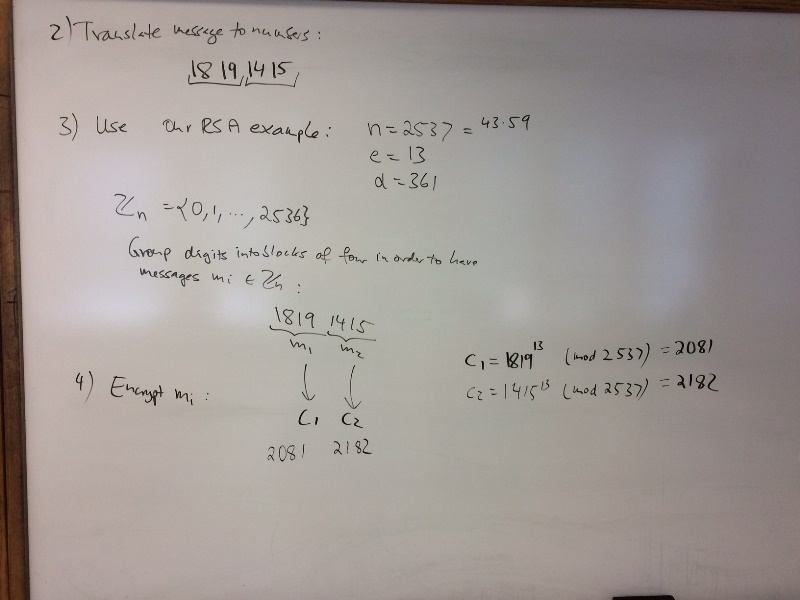 2) Translate message to numbers:
18 19, 14 15,
3) Use our RSA example: n=2537 = 43·59
e = 13
d = 361
ℤn = {0,1, ..., 2536}
Group digits into blocks of four in order to have
messages mi ∈ ℤn :
1819 1415
m1 m2
4) Encrypt mi :
C1 C2
2081 2182
C1 = 1819^13 (mod 2537) = 2081
C2 = 1415^13 (mod 2537) = 2182